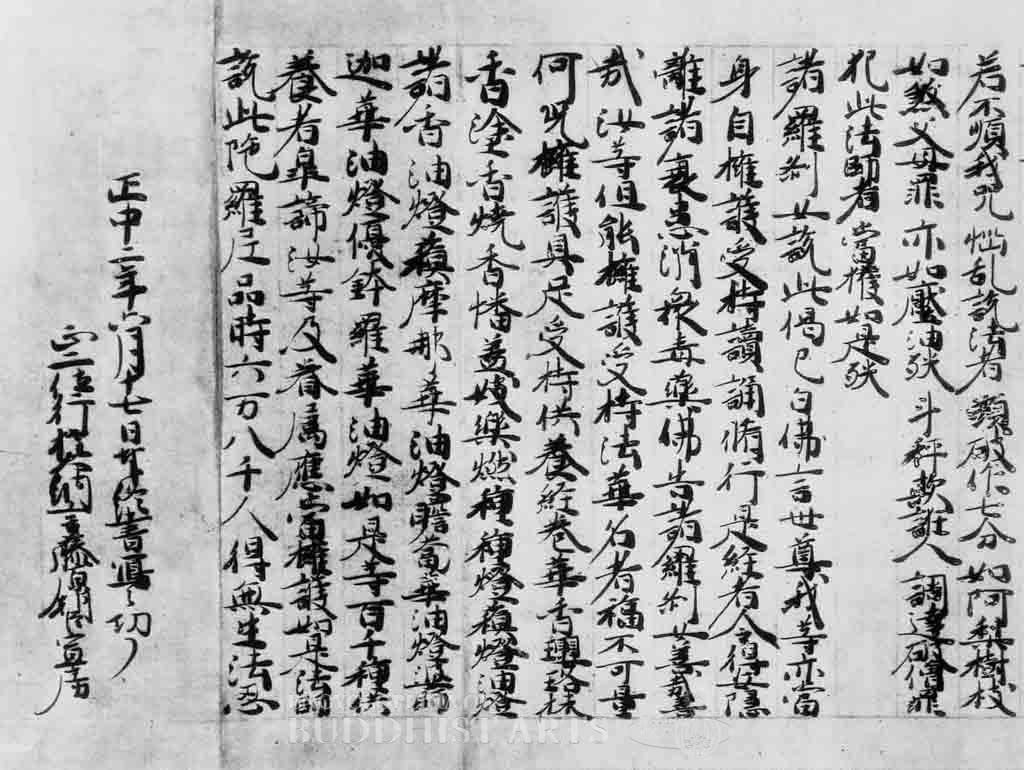 若不順我咒惱乱説法者頭破作七分如阿梨樹枝
如煞父母罪亦如壓油殃斗秤欺誑人調達破僧罪
犯此法師者當獲如是殃
諸羅刹女説此偈已白佛言世尊我等亦當
身自擁護受持讀誦脩行是経者令得安隠
離諸衰患消衆毒藥佛告諸羅刹女善哉善
哉汝等但能擁護受持法華名者福不可量
何況擁護具足受持供養経巻華香瓔珞抹
香塗香燒香幡蓋妓樂燃種種燈蘓燈油燈
諸香油燈蘓摩那華油燈瞻蔔華油燈婆師
迦華油燈優鉢羅華油燈如是等百千種供
養者睾諦汝等及眷属應當擁護如是法師
説此陁羅尼品時六万八千人得無生法忍
正中二年六月十七日 書寫之功了
正二位行権
BUDDHIST ARTS